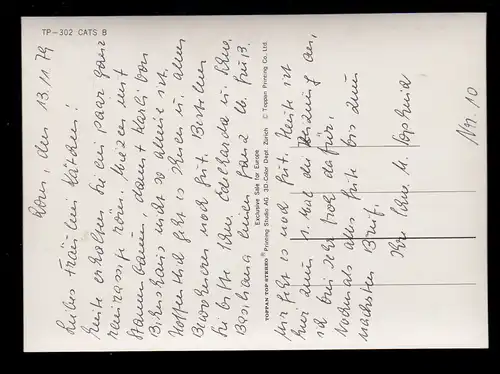 TP-302 CATS B
Rom, den 13.11.79
Liebes Fräulein Kätchen!
Heute erhalten Sie ein paar ganz
reinrassige röm. Katzen mit
Stammbaum, damit Karli von
nicht so alleine ist.
Hoffentlich geht es Ihnen u. allen
Bewohnern noch gut. Bestellen
Sie bitte Schw. Edelharda u. Schw.
einen ganz lb. Gruß.
Mir geht es noch gut. Heute ist
hier zum 1. Mal die Heizung an,
ich bin sehr froh dafür,
Nochmals alles Gute bis zum
nächsten Brief.
Ihre Schw. M.
Nr. 10
TOPPAN TOP STEREO ® Printing Studio AG. 3D Color Dept. Zürich © Toppan Printing Co. Ltd.
Exclusive Sale for Europe